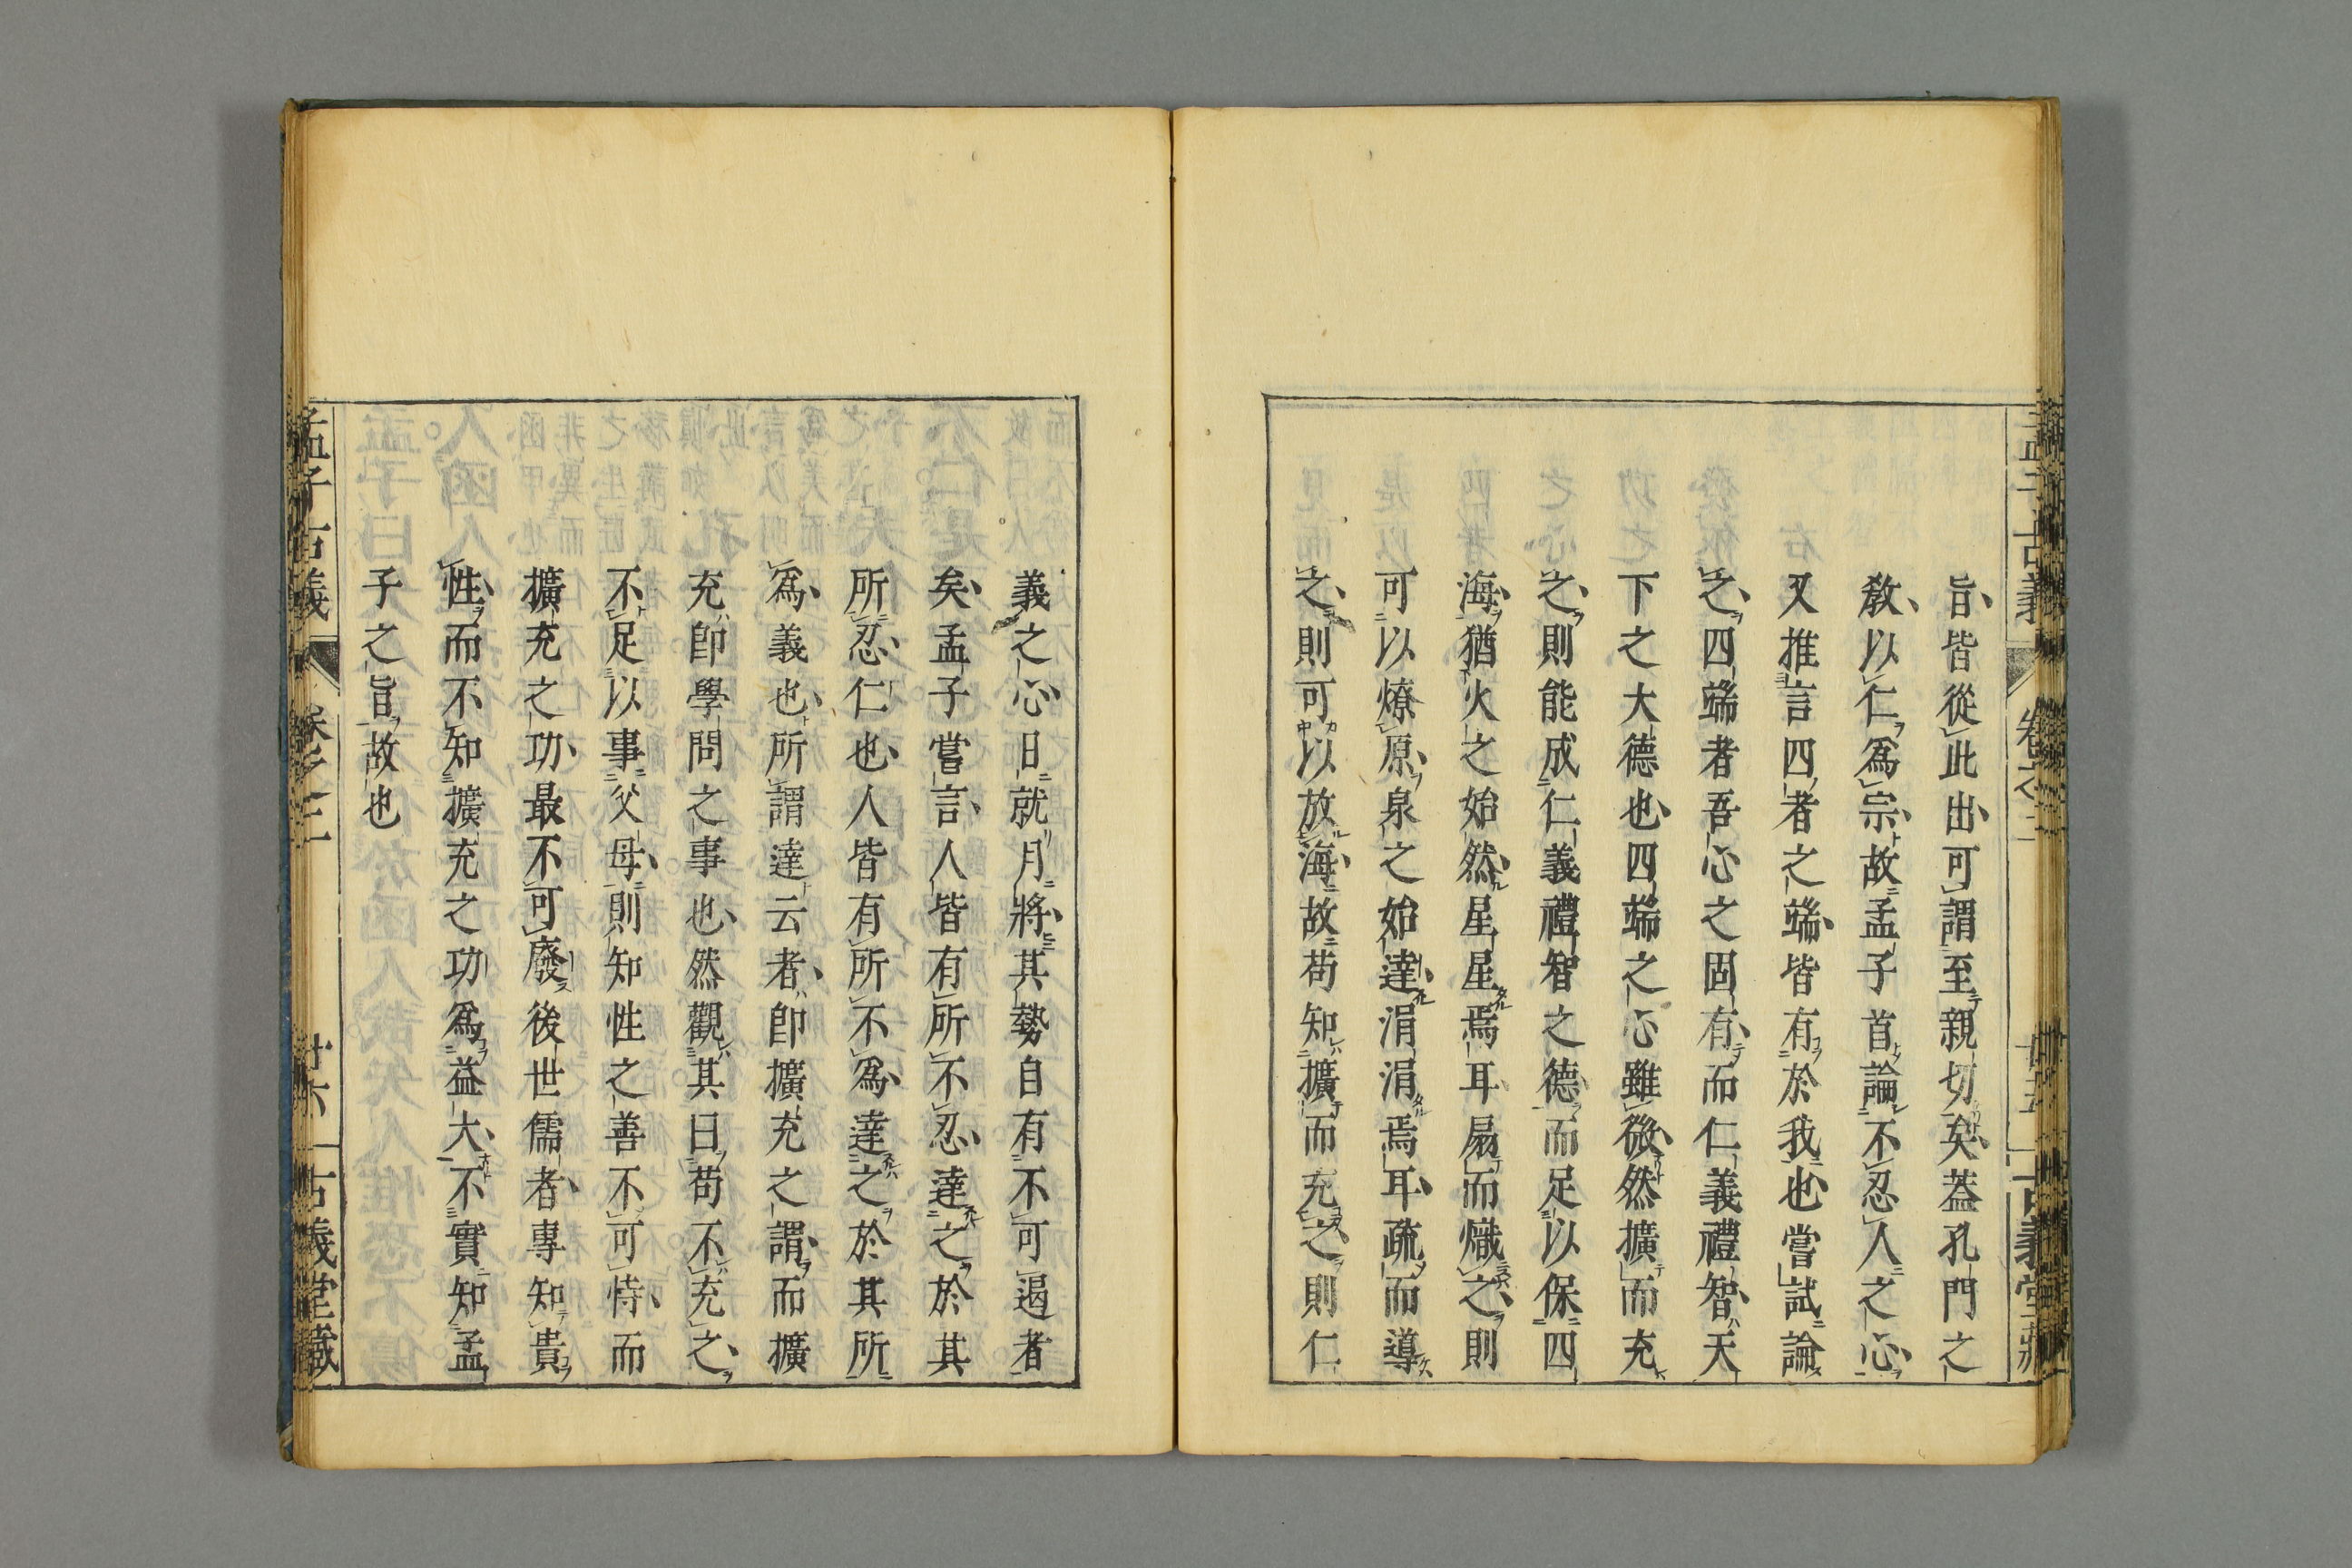 旨皆從此出可謂至親切矣蓋孔門之
教以仁爲宗故孟子首論不忍人之心
又推言四者之端皆有於我也嘗試論
之四端者吾心之固有而仁義禮智天
下之大德也四端之心雖微然擴而充
之則能成仁義禮智之德而足以保四
海猶火之始然星星焉耳昜而熾之則
可以燎原泉之始達涓涓焉耳疏而導
之則可以放海故苟知擴而充之則仁
義之心日就月將其勢自有不可遏者
矣孟子嘗言人皆有所不忍達之於其
所忍仁也人皆有所不爲達之於其所
爲義也所謂達云者卽擴充之謂而擴
充卽學問之事也然觀其曰苟不充之
不足以事父母則知性之善不可恃而
擴充之功最不可廢後世儒者專知貴
性而不知擴充之功爲益大不實知孟
子之旨故也
孟子古義 卷之二 廿六 古義堂藏